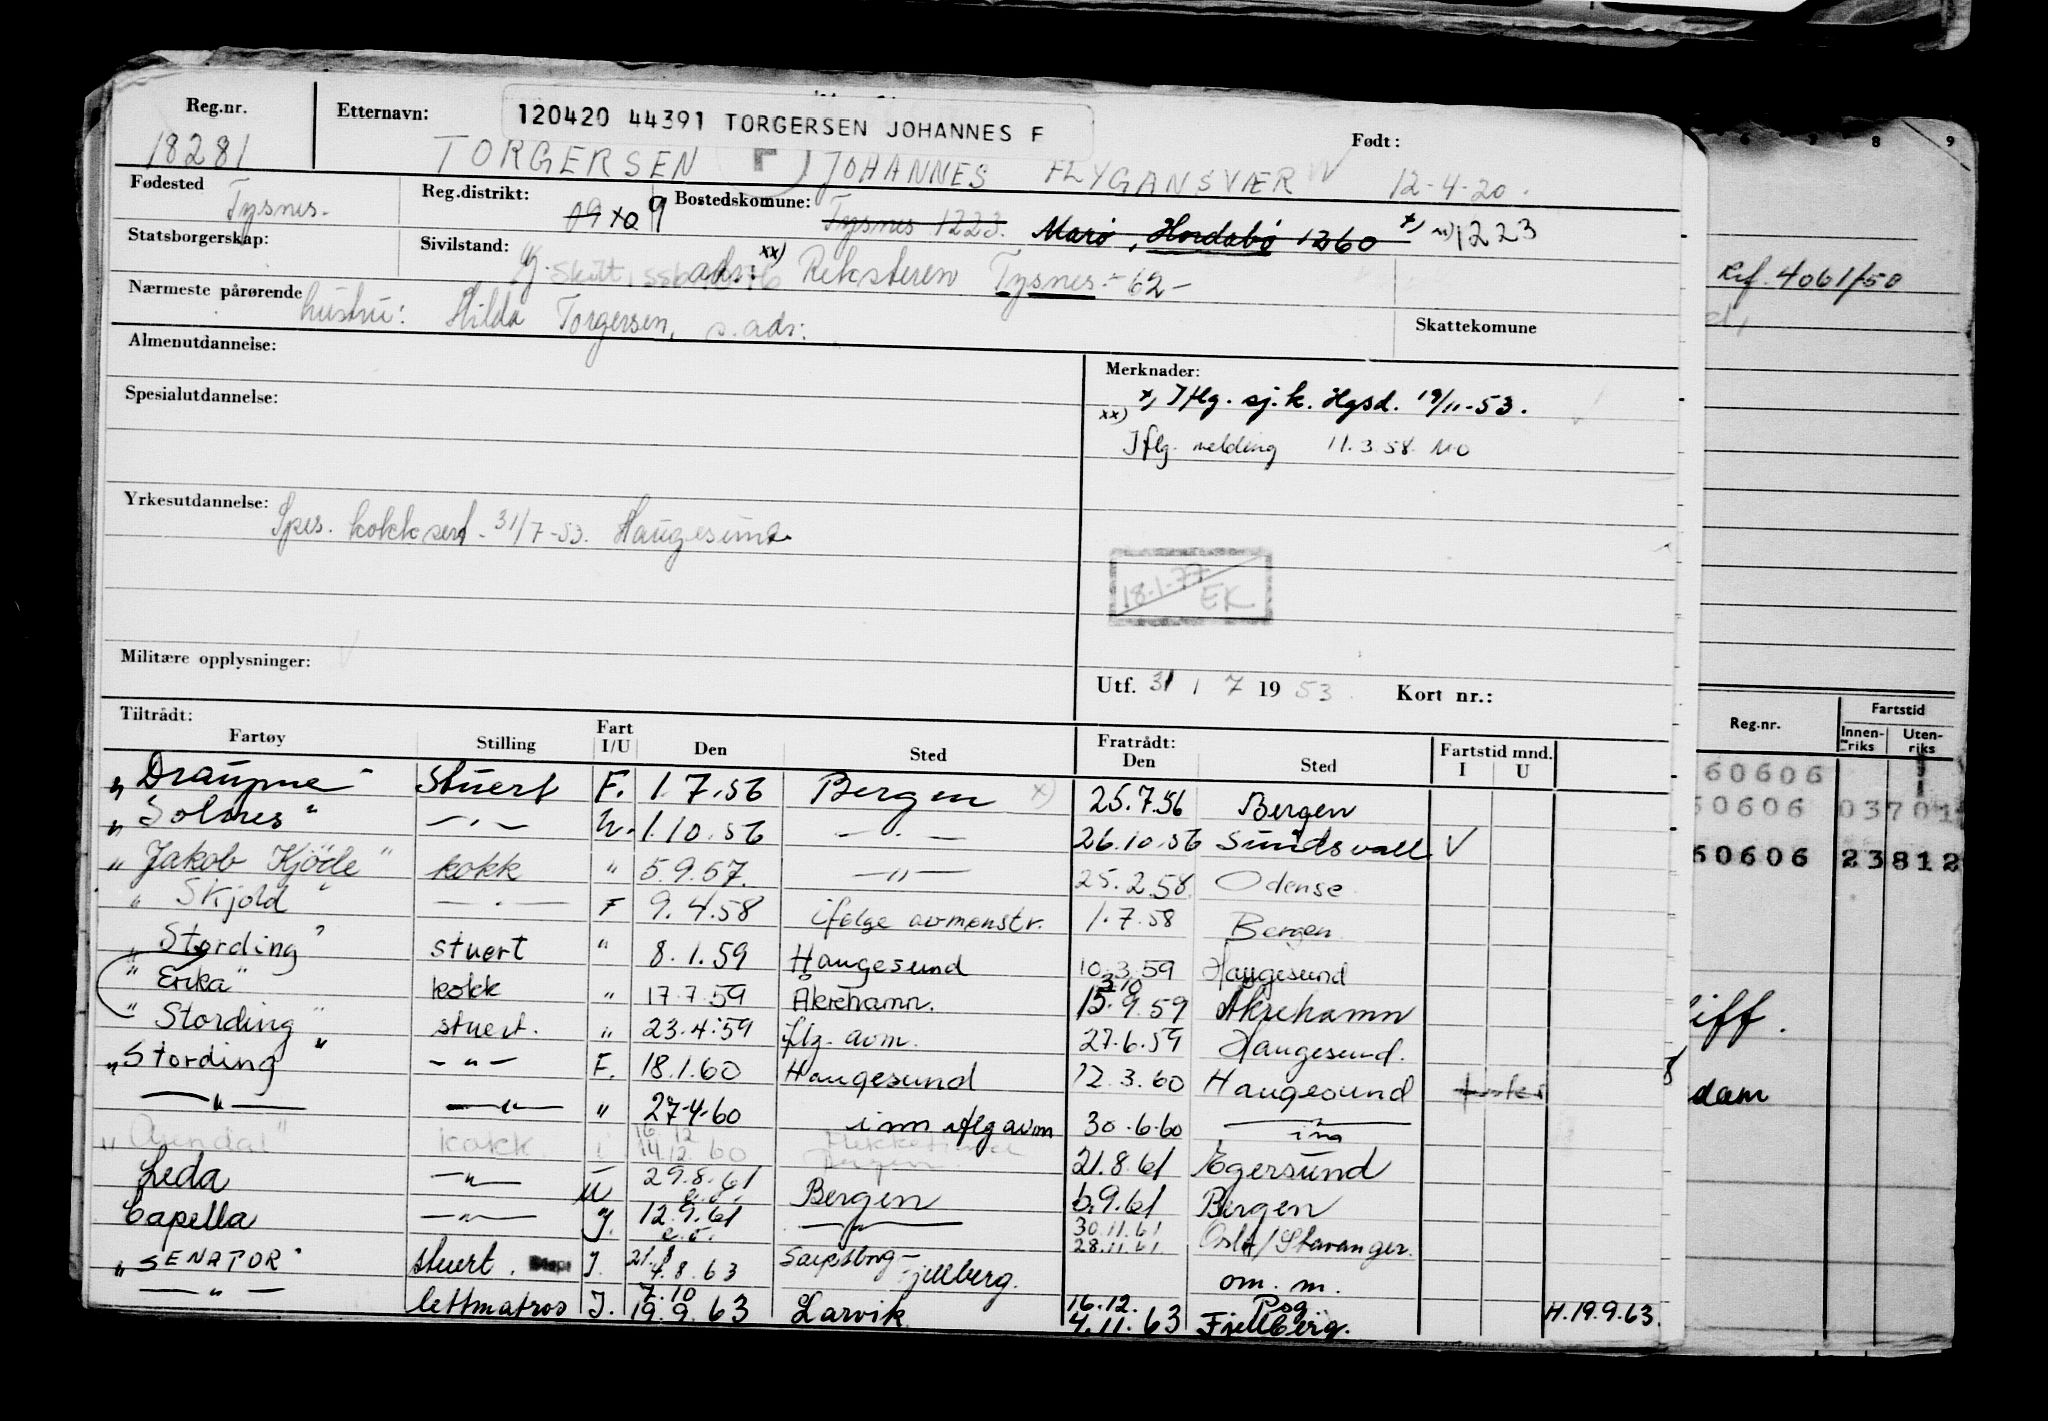 Reg.nr.
18281
Etternavn:
120420 44391 TORGERSEN JOHANNES F
TORGERSEN JOHANNES FLYGANSVÆR
Født:
12-4-20.
Fødested
Tysnes.
Reg.distrikt:
09 x09
Bostedskomune:
Tysnes 1223. Marø, Hordabø 1260 x) 1223
Statsborgerskap:
Sivilstand:
g. adr: xx) Reksteren Tysnes - 62 -
Nærmeste pårørende
hustru: Hilda Torgersen, s. adr:
Skattekomune
Almenutdannelse:
Merknader:
x) Iflg. sj.k. Hgsd. 19/11-53.
xx)
Iflg. melding 11.3.58. MO
Spesialutdannelse:
Yrkesutdannelse:
Spes. kokksert. 31/7-53. Haugesund.
18-1-77
EK
Militære opplysninger:
Utf. 31 / 7 19 53. Kort nr.:
Tiltrådt:
Fartøy Stilling Fart I/U Den Sted Fratrådt: Den Sted Fartstid mnd. I U
"Draupne" Stuert F. 1.7.56 Bergen x) 25.7.56 Bergen
"Solnes" - " - U. 1.10.56 - " - 26.10.56 Sundsvall V
"Jakob Kjöde" kokk " 5.9.57. - " - 25.2.58. Odense
"Skjold" - " - F 9.4.58 ifølge avmønstr. 1.7.58 Bergen
"Stording" stuert " 8.1.59 Haugesund 10.3.59 Haugesund
"Erika" kokk " 17.7.59 Åkrehamn. 3.10 15.9.59 Åkrehamn
"Stording" stuert. " 23.4.59 flg. avm. 27.6.59 Haugesund.
"Stording" - " - F. 18.1.60 Haugesund 12.3.60 Haugesund
- " - - " - " 27-4-60 inn iflg avm 30.6.60 - " -
kokk 16.12 14.12.60 Bergen 21.8.61 Egersund
Leda - " - U 29.8.61 Bergen 6.9.61 Bergen
Capella - " - I. 12.9.61 - " - 30.11.61 28.11.61 Oslo/Stavanger.
"SENATOR" stuert. I. 21.8 4.8.63 Sarpsborg - Fjellberg. om. m.
- " - lettmatros I. 7.10 19.9.63 Larvik 16.12. 4.11.63 Pog. Fjellberg. H.19.9.63.
8 9
Ref. 4061/50
Reg.nr. Fartstid
Innen-riks Uten-riks
60606
60606 03701
60606 23812
iff.
dam